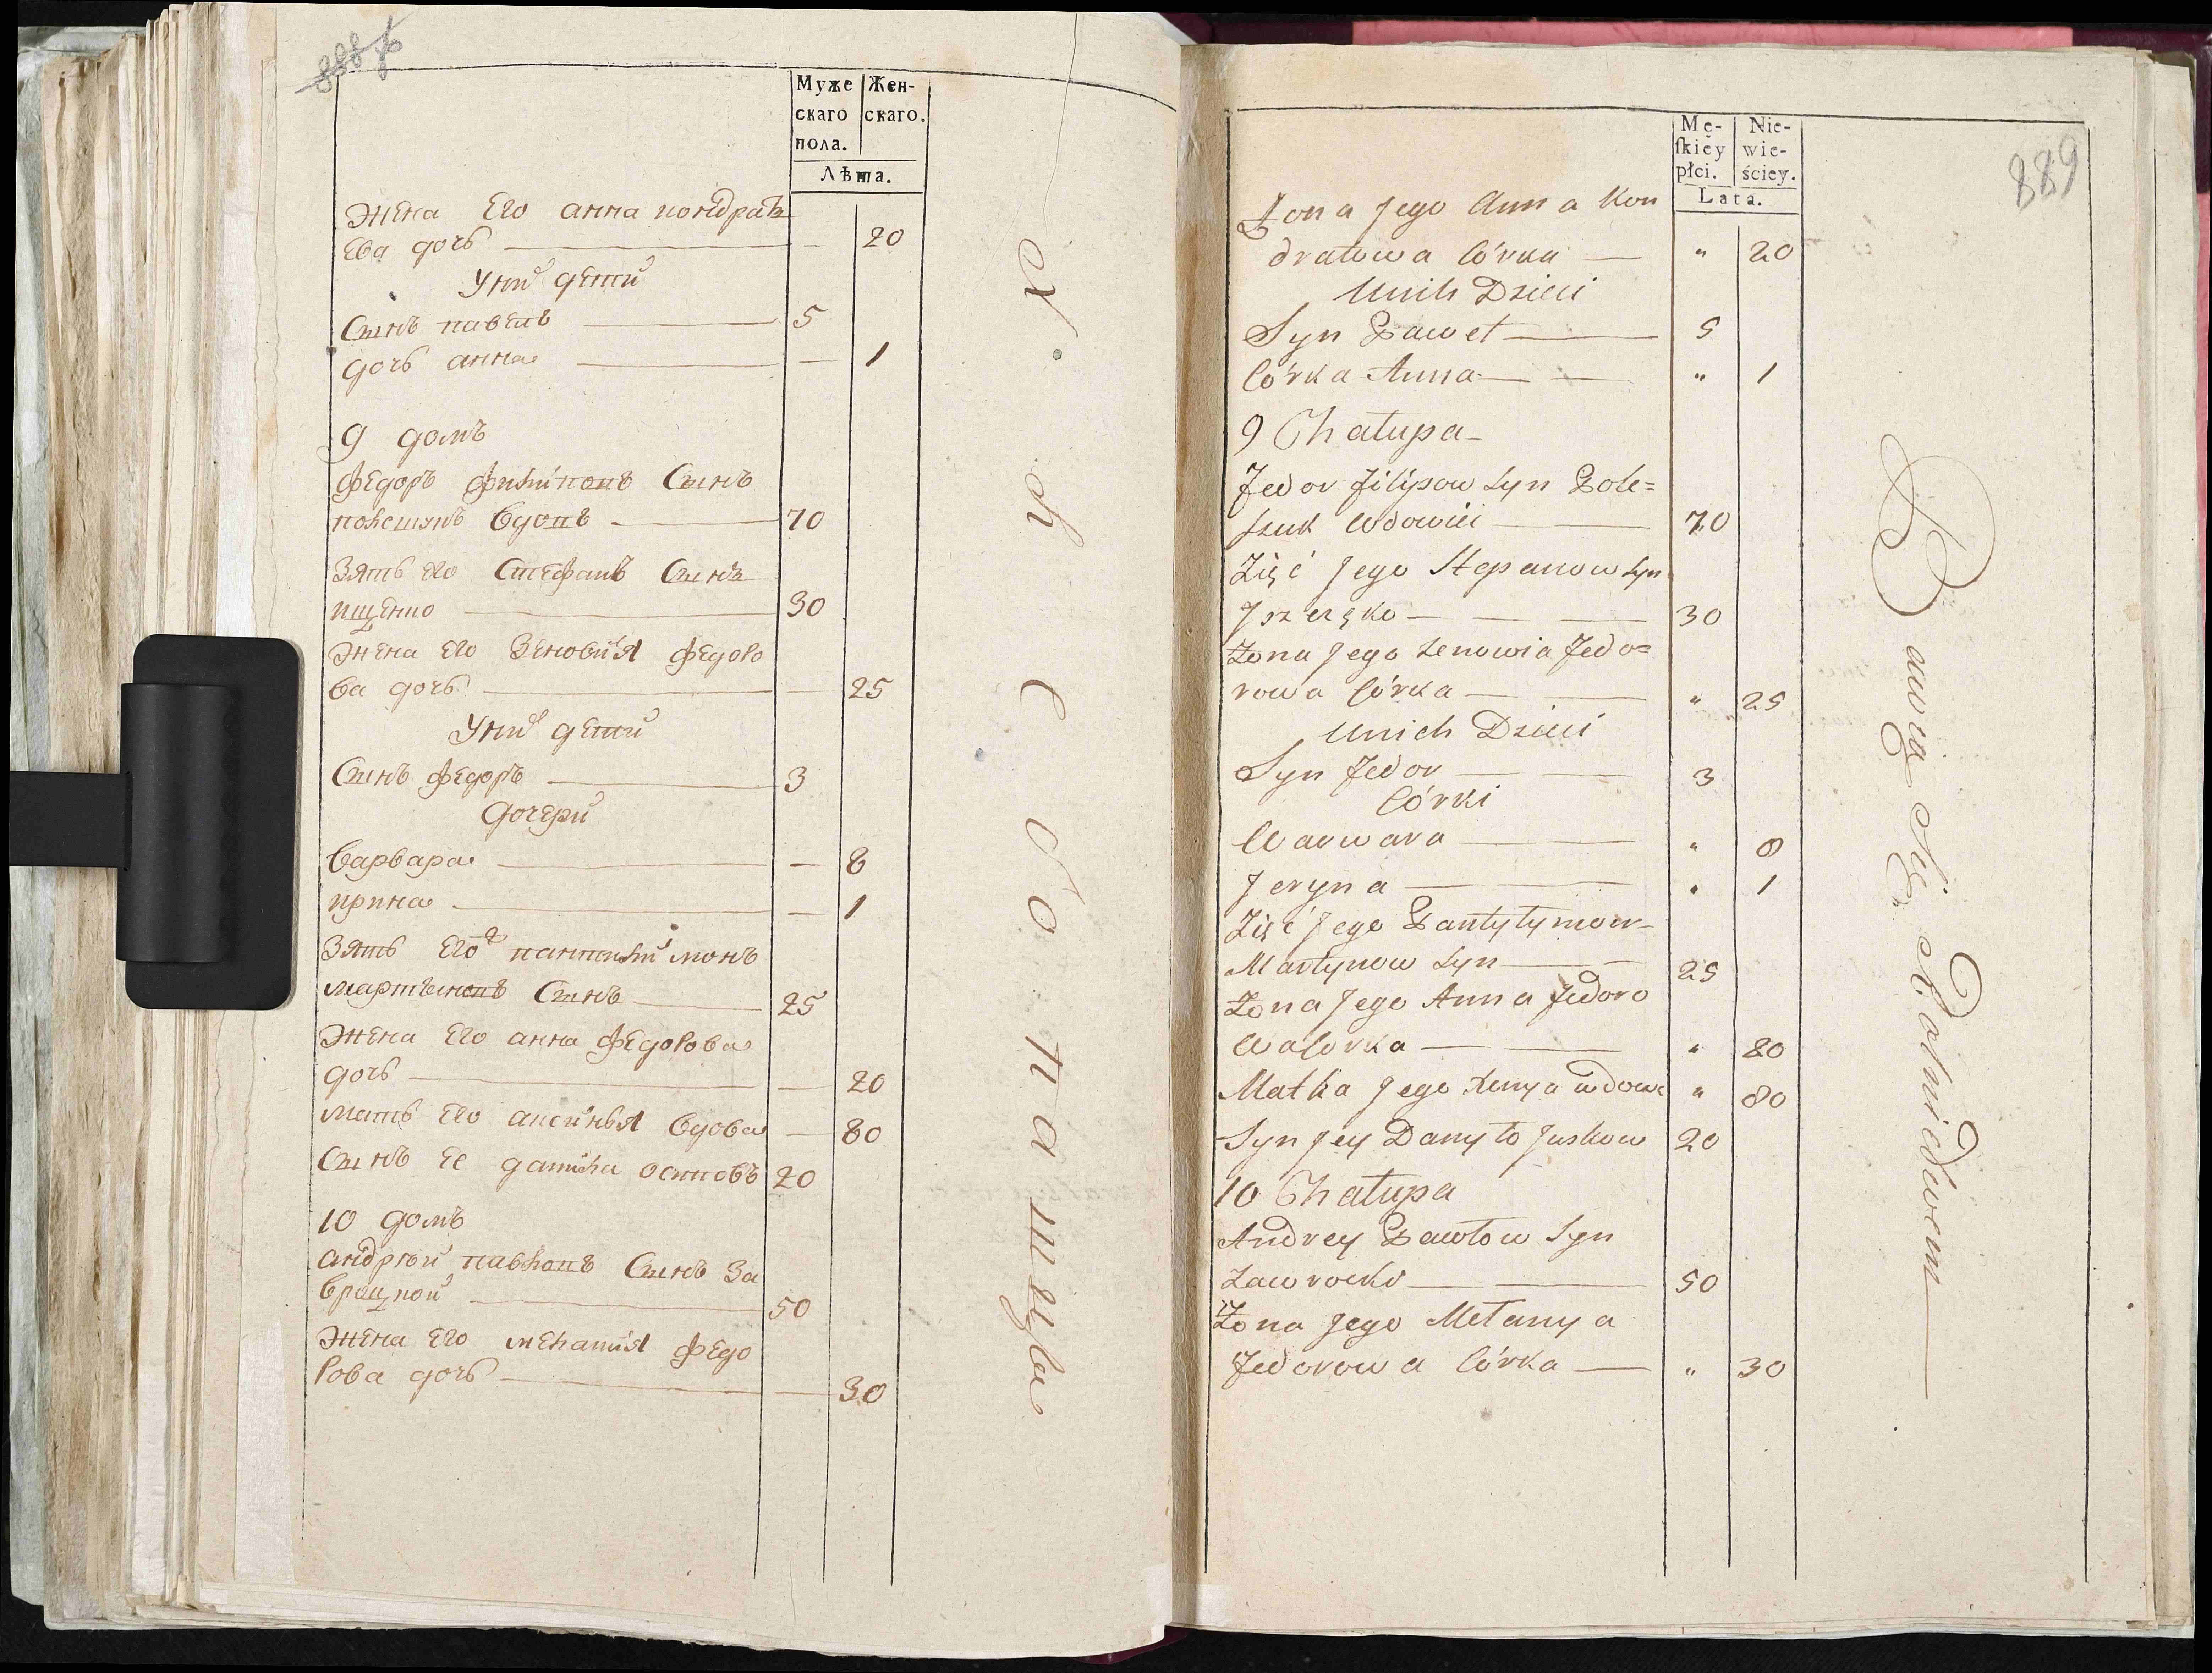 888 b
Муже
скаго
пола.
Жен-
скаго.
Лѣта.
жена Его анна кондратъ
Ева дочь — — 20
Уних дети
Сынъ павелъ — 5
дочь анна — — 1
9 домъ
федоръ филиповъ Сынъ
полешукъ вдовъ — 70
Зять его Стефанъ Сынъ
ищенко — 30
жена его Зеновия федоро
ва дочь — — 25
Уних дети
Сынъ федоръ — 3
дочери
варвара — — 8
ирина — — 1
Зять Его 2 пантилимонъ
мартыновъ Сынъ — 25
жена Его анна федорова
дочь — — 20
мать Его аксинья вдова — 80
Сынъ Ее данила осиповъ 20
10 домъ
андрѣй павловъ Сынъ За
— 50
жена Его мелания федо
рова дочь — — 30
хлебопашцы
889
Mę-
ſkiey
płci.
Nie-
wie-
ściey.
Lata.
Żona Jego Anna Kon
dratowa Córka — " 20
Unich Dzieci
Syn Paweł — 5
Córka Anna — — " 1
9 Chałupa
Fedor Filipow Syn Pole=
szuk Wdowiec — 70
Zięć Jego Stepanow Syn
— — — 30
Żona Jego Zenowia Fedo=
rowa Córka — — " 25
Unich Dzieci
Syn Fedor — — 3
Córki
Warwara — — " 8
Jeryna — — " 1
Zięć Jego Pantylymow-
Martynow Syn — — 25
Żona Jego Anna Fedoro
wa Corka — — " 20
Matka Jego Xenya wdowa " 80
Syn Jey Danyło Juskow 20
10 Chałupa
Andrey Pawłow Syn
Zawrocki — — 50
Żona Jego Melanya
Fedorowa Córka — " 30
Bawią Się Rolnictwem